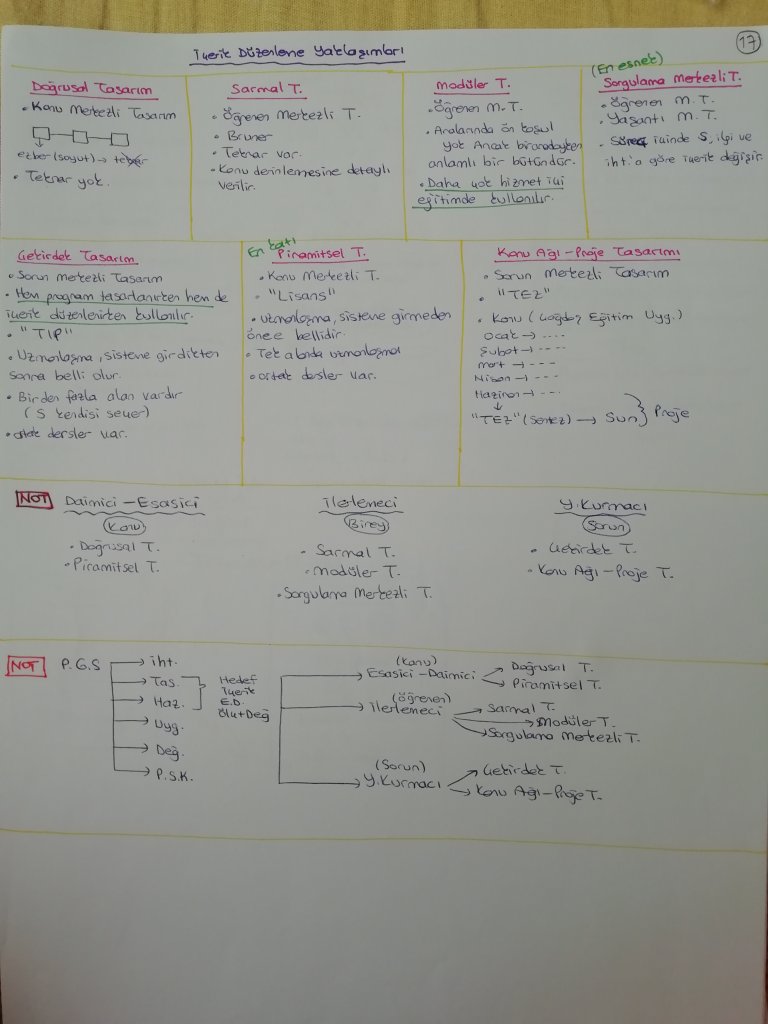 İçerik Düzenleme Yaklaşımları
17
Doğrusal Tasarım
• Konu Merkezli Tasarım
ezber (soyut) → tekrar
• Tekrar yok.
Sarmal T.
• Öğrenen Merkezli T.
• Bruner
• Tekrar var.
• Konu derinlemesine detaylı
verilir.
Modüler T.
• Öğrenen M.T.
• Aralarında ön koşul
yok Ancak bir aradayken
anlamlı bir bütündür.
• Daha çok hizmet içi
eğitimde kullanılır.
(En esnek)
Sorgulama Merkezli T.
• Öğrenen M.T.
• Yaşantı M.T.
• Süreç içinde S, ilgi ve
iht.'a göre içerik değişir.
Çekirdek Tasarım
• Sorun Merkezli Tasarım
• Hem program tasarlanırken hem de
içerik düzenlenirken kullanılır.
• "TIP"
• Uzmanlaşma, sisteme girdikten
sonra belli olur.
• Birden fazla alan vardır
(S kendisi seçer)
• Ortak dersler var.
En katı
Piramitsel T.
• Konu Merkezli T.
• "Lisans"
• Uzmanlaşma, sisteme girmeden
önce bellidir.
• Tek alanda uzmanlaşma
• Ortak dersler var.
Konu Ağı - Proje Tasarımı
• Sorun Merkezli Tasarım
• "TEZ"
• Konu (Çağdaş Eğitim Uyg.)
Ocak → ....
Şubat → ---
Mart → ---
Nisan → ---
Haziran → ---
"TEZ" (Sentez) → Sun } Proje
NOT
Daimici - Esasici
Konu
• Doğrusal T.
• Piramitsel T.
İlerlemeci
Birey
• Sarmal T.
• Modüler T.
• Sorgulama Merkezli T.
Y. Kurmacı
Sorun
• Çekirdek T.
• Konu Ağı - Proje T.
NOT
P.G.S
iht.
Tas.
Haz.
Uyg.
Değ.
P.S.K.
Hedef
İçerik
E.D.
Ölç+Değ
(Konu)
Esasici - Daimici
Doğrusal T.
Piramitsel T.
(Öğrenen)
İlerlemeci
Sarmal T.
Modüler T.
Sorgulama Merkezli T.
(Sorun)
Y. Kurmacı
Çekirdek T.
Konu Ağı - Proje T.